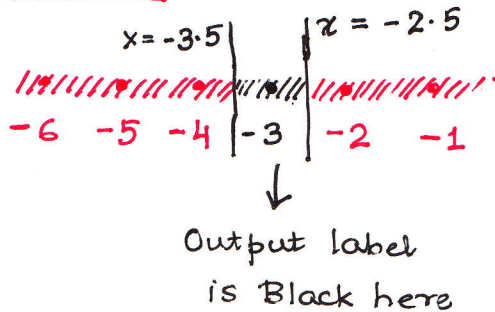 x = -3.5 x = -2.5
-6 -5 -4 -3 -2 -1
Output label
is Black here